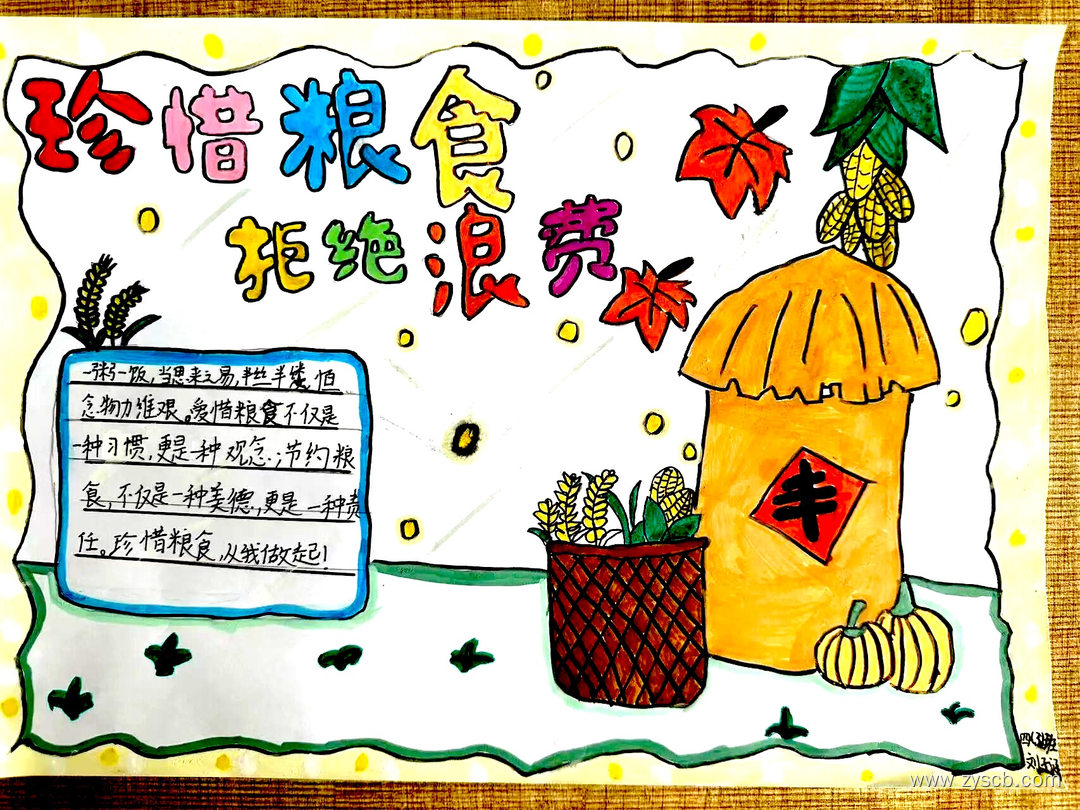 珍惜粮食
拒绝浪费
一粥一饭,当思来之易,半丝半缕,恒
念物力维艰。爱惜粮食不仅是
一种习惯,更是一种观念.节约粮
食,不仅是一种美德,更是一种责
任。珍惜粮食,从我做起!
丰
www.zyscb.com